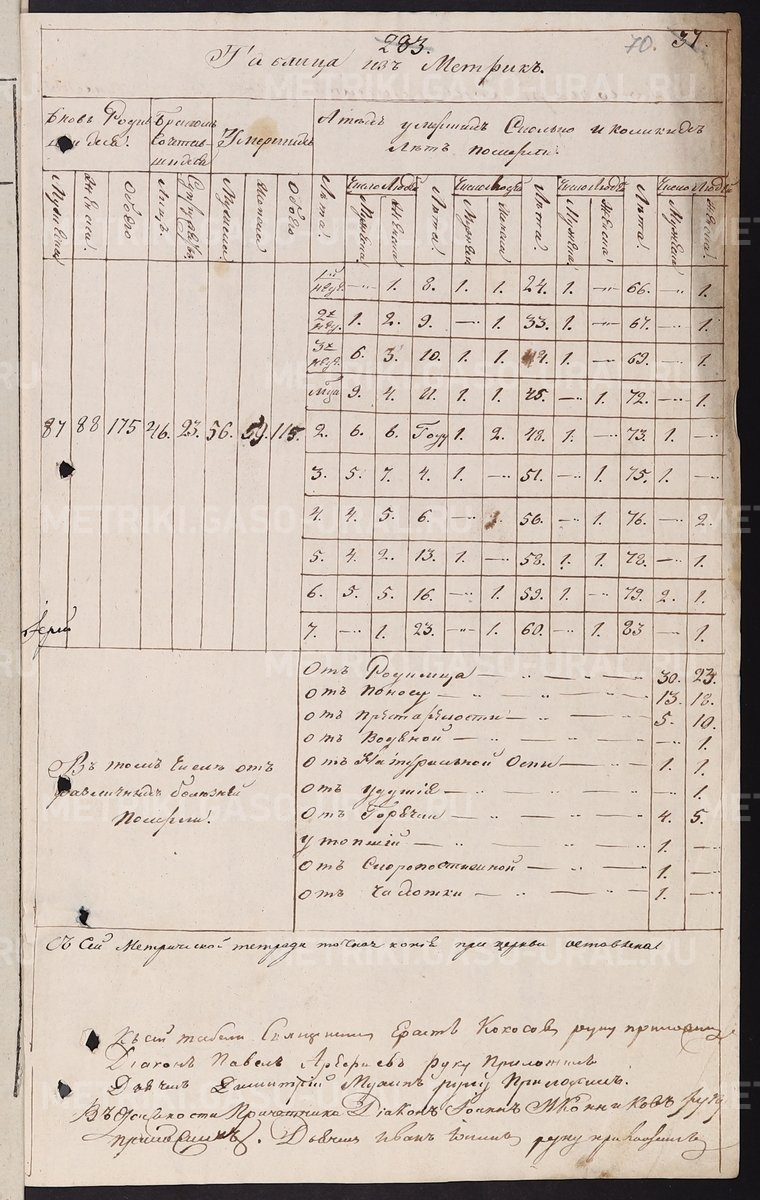 283.
70. 37.
Таблица изъ Метрикъ.
Вновь Роди
лидеся!
Бракомъ
Сочетав
шидеся
Умершихъ
Лѣтъ умершихъ Сколько и коликихъ
лѣтъ померли.
Мужеска Женска! Обоего Лицъ. Супружес Мужеска Женска Обоего Лѣта! Число Людей Мужеска Женска! Лѣта! Число Людей Мужеска Женска Лѣта! Число Людей Мужеска! Женска! Лѣта! Число Людей Мужеска Женска!
— 1. 8. 1. 1. 24. 1. — 66. — 1.
1. 2. 9. — 1. 33. 1. — 67. — 1.
6. 3. 10. 1. 1. 1. — 69. — 1.
9. 4. 11. 1. 1. 45. — 1. 72. — 1.
87 88 175 46. 23. 56. 59. 115.
2. 6. 6. Году 1. 2. 48. 1. — 73. 1. —
3. 5. 7. 4. 1. — 51. — 1. 75. 1. —
4. 4. 5. 6. — 56. — 1. 76. — 2.
5. 4. 2. 13. 1. — 58. 1. 1. 78. — 1.
6. 5. 5. 16. — — 59. 1. — 79. 2. 1.
7. — 1. 23. — 1. 60. — 1. 83 — 1.
Іерей
Въ томъ числѣ отъ
различныхъ болѣзней
Померли!
Отъ Родимца — 30. 23.
Отъ Поносу — 13. 18.
Отъ Престарѣлости — 5. 10.
Отъ Водяной — — 1.
Отъ Натуральной Оспы — 1. 1.
Отъ Удушія — — 1.
Отъ Горячки — 4. 5.
Утопшій — 1. —
Отъ Скоропостижной — 1. —
Отъ Чахотки — 1. —
Съ Сей Метрической тетради точная копія при церкви оставлена!
Къ сей табели Священникъ Ерастъ Кокосовъ руку приложилъ
Діаконъ Павелъ руку Приложилъ
Дьячекъ Димитрій руку Приложилъ.
Въ Должности Причетника Діаконъ руку
приложилъ. Дьячекъ Иванъ руку приложилъ
METRIKI.GASO-URAL.RU